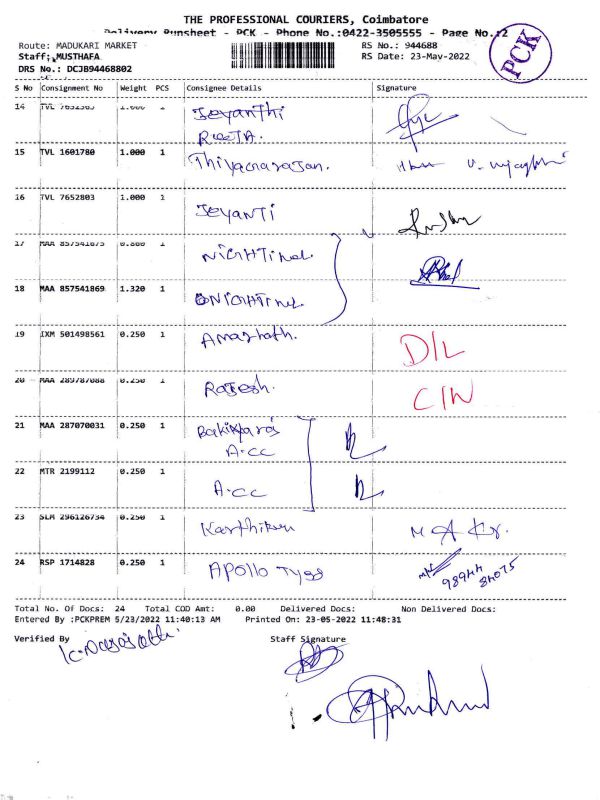 THE PROFESSIONAL COURIERS, Coimbatore
Delivery Runsheet - PCK - Phone No.:0422-3505555 - Page No.:2
PCK
Route: MADUKARI MARKET
RS No.: 944688
Staff: MUSTHAFA
RS Date: 23-May-2022
DRS No.: DCJB94468802
S No Consignment No Weight PCS Consignee Details Signature
14 TVL 1.000 1 Jeyanthi
ReetA.
15 TVL 1601780 1.000 1 Thiyagarajan.
16 TVL 7652803 1.000 1 Jeyanti
17 MAA 857541875 0.860 1 NIGHTING.
18 MAA 857541869 1.320 1 NIGHTING.
19 IXM 501498561 0.250 1 Amarnath. D/L
20 MAA 289787088 0.250 1 Rajesh. C/N
21 MAA 287070031 0.250 1
A.CC
22 MTR 2199112 0.250 1 A.CC
23 SLM 296126734 0.250 1 Karthikeyan
24 RSP 1714828 0.250 1 APOLLO Tyss 98944 84075
Total No. Of Docs: 24 Total COD Amt: 0.00 Delivered Docs: Non Delivered Docs:
Entered By :PCKPREM 5/23/2022 11:40:13 AM Printed On: 23-05-2022 11:48:31
Verified By Staff Signature